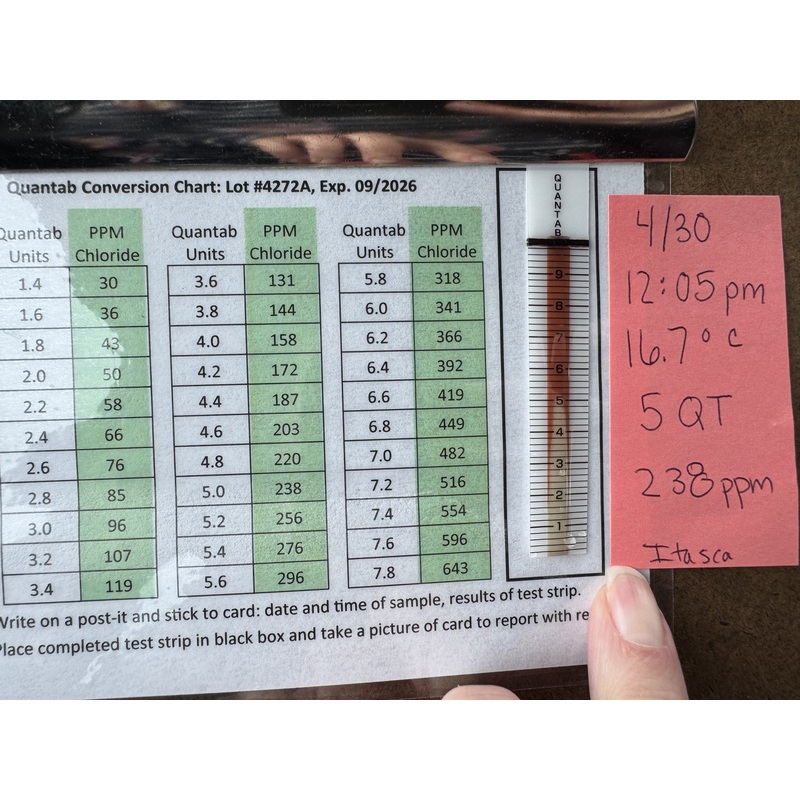 Quantab Conversion Chart: Lot #4272A, Exp. 09/2026
Quantab Units PPM Chloride
1.4 30
1.6 36
1.8 43
2.0 50
2.2 58
2.4 66
2.6 76
2.8 85
3.0 96
3.2 107
3.4 119
Quantab Units PPM Chloride
3.6 131
3.8 144
4.0 158
4.2 172
4.4 187
4.6 203
4.8 220
5.0 238
5.2 256
5.4 276
5.6 296
Quantab Units PPM Chloride
5.8 318
6.0 341
6.2 366
6.4 392
6.6 419
6.8 449
7.0 482
7.2 516
7.4 554
7.6 596
7.8 643
QUANTAB
9
8
7
6
5
4
3
2
1
4/30
12:05 pm
16.7° C
5 QT
238 ppm
Itasca
Write on a post-it and stick to card: date and time of sample, results of test strip.
Place completed test strip in black box and take a picture of card to report with re